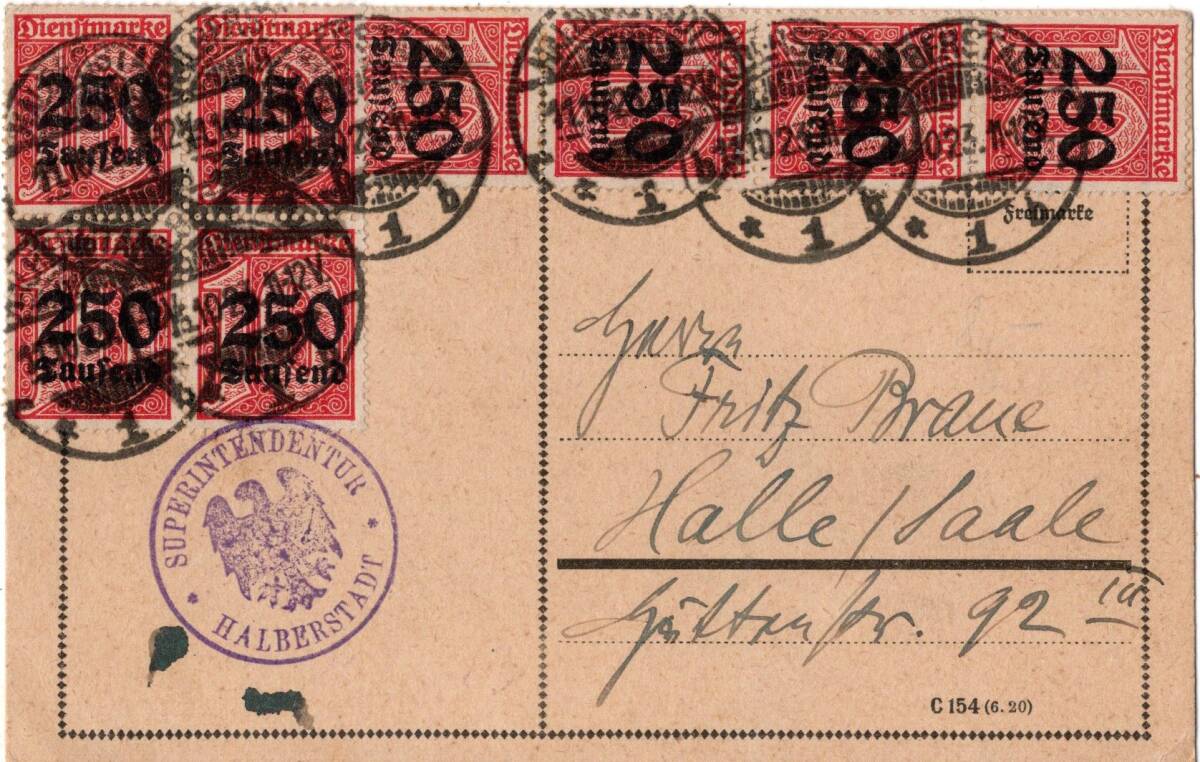 Dienstmarke Dienstmarke Dienstmarke Dienstmarke Dienstmarke Dienstmarke
250 250 250 250 250 250
Tausend Tausend Tausend Tausend Tausend Tausend
* 1 b
Dienstmarke Dienstmarke
250 250
Tausend Tausend
* 1 b
Freimarke
Herrn
Fritz Braue
Halle / Saale
Hüttenstr. 92
SUPERINTENDENTUR
* HALBERSTADT *
C 154 (6. 20)